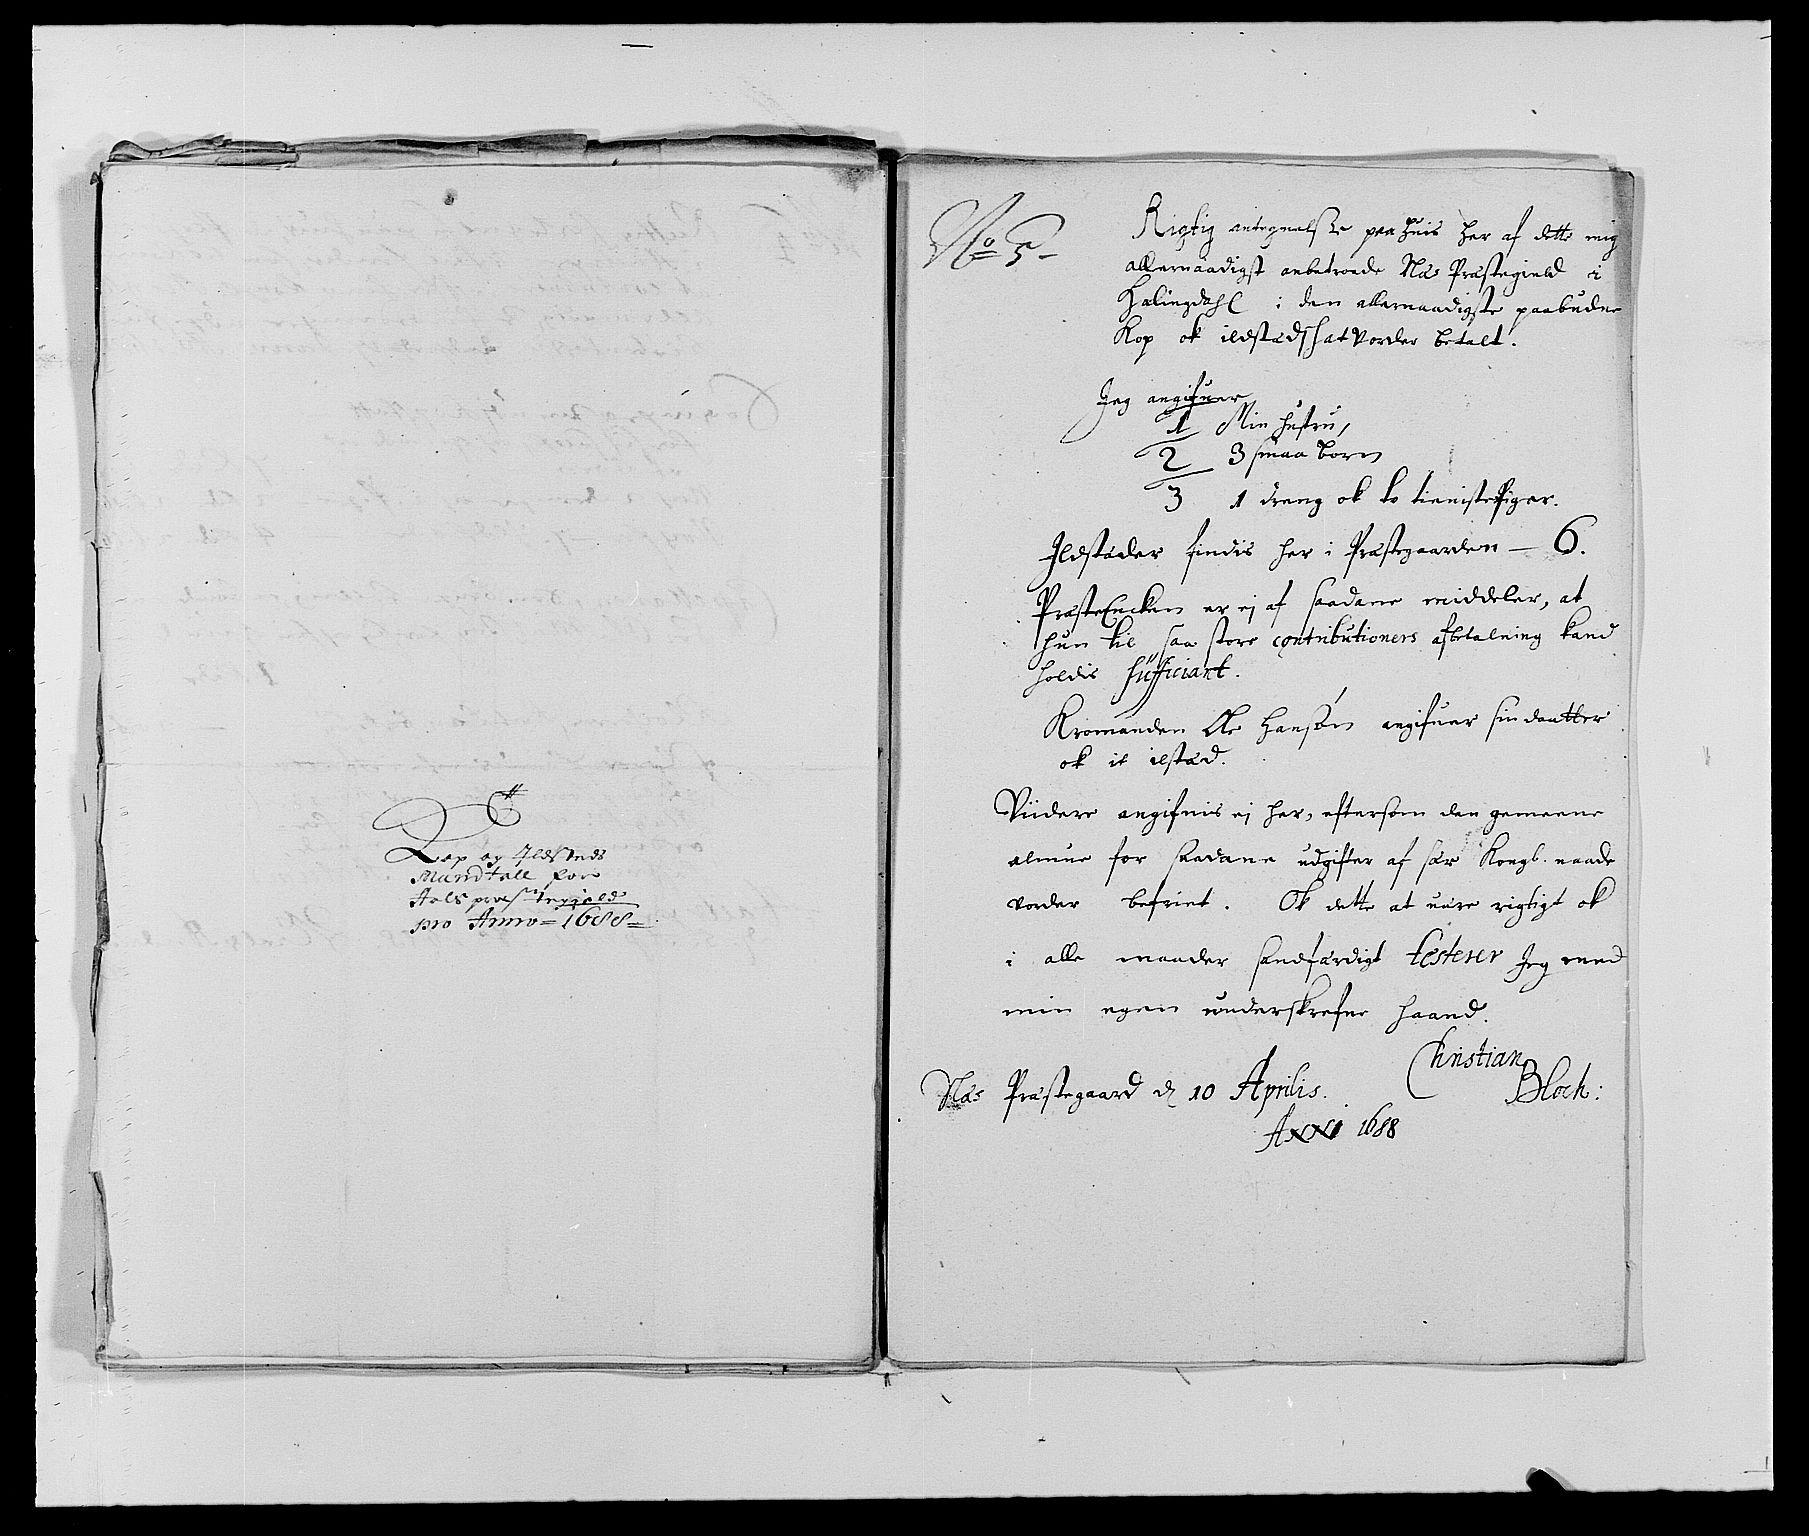 Kop og Ildsteds
Mandtall for
Aals præstegield
pro Anno = 1688 =
No 5
Rigtig antegnelse paa huis her af dette mig
allernaadigst anbetroede Næs Præstegield i
Halingdahl i den allernaadigste paabudne
Kop ok ildstædshat vorder betalt.
Jeg angifuer
1 Min hustru,
2 3 smaa børn
3 1 dreng ok to tienistepiger.
Ildstæder findis her i Præstegaarden — 6.
PræsteEncken er ej af saadane middeler, at
hun til saa store contributioners afbetalning kand
holdis sufficiant.
Kromanden Ole Hansøn angifuer sin daatter
ok it ilstæd.
Viidere angifuis ej her, eftersom den gemeene
almue for saadane udgifter af sær Kongl. naade
vorder befriet. Ok dette at uære rigtigt ok
i alle maader sandfærdigt testerer Jeg med
min egen underskrefne haand.
Christian
Bloch:
Næs Præstegaard d 10 Aprilis.
Anni 1688